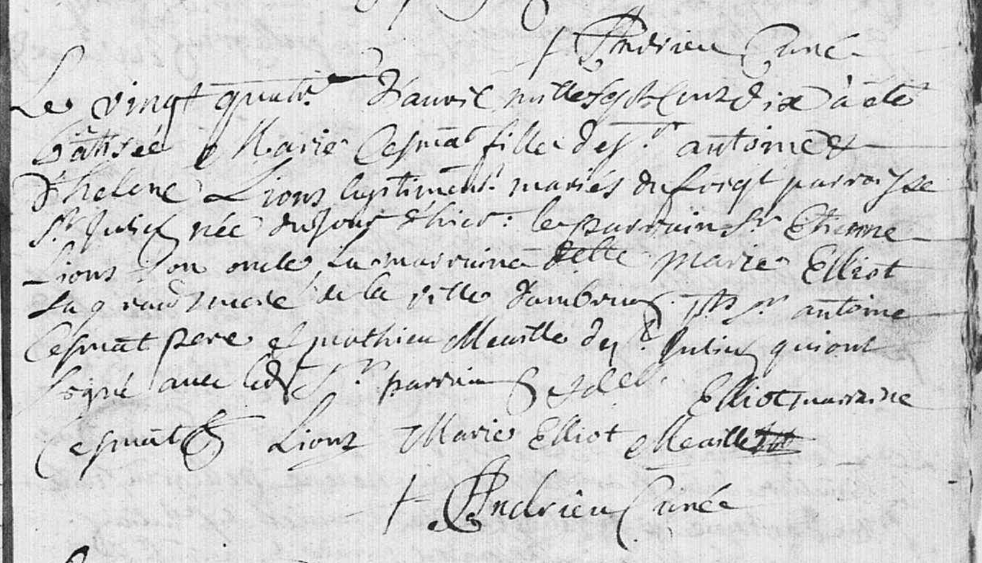 † Andrieu Curé
Le vingt quatr. d'auril mille sept cent dix à été
bâtisée Marie Cesmat fille de sr. antoine &
d'helene Lions legitimemt. mariés du lieu parroisse
St. Julien née du jour d'hier: le parrain Sr. Etienne
Lions son oncle, la marraine delle marie Elliot
sa grand mere de la ville d'ambrun sr. antoine
Cesmat pere & mathieu Meaille de St. Julien qui ont
signé auec led. Sr. parrain & delle. Elliot marraine
Cesmat Lions Marie Elliot Meaille
† Andrieu Curée